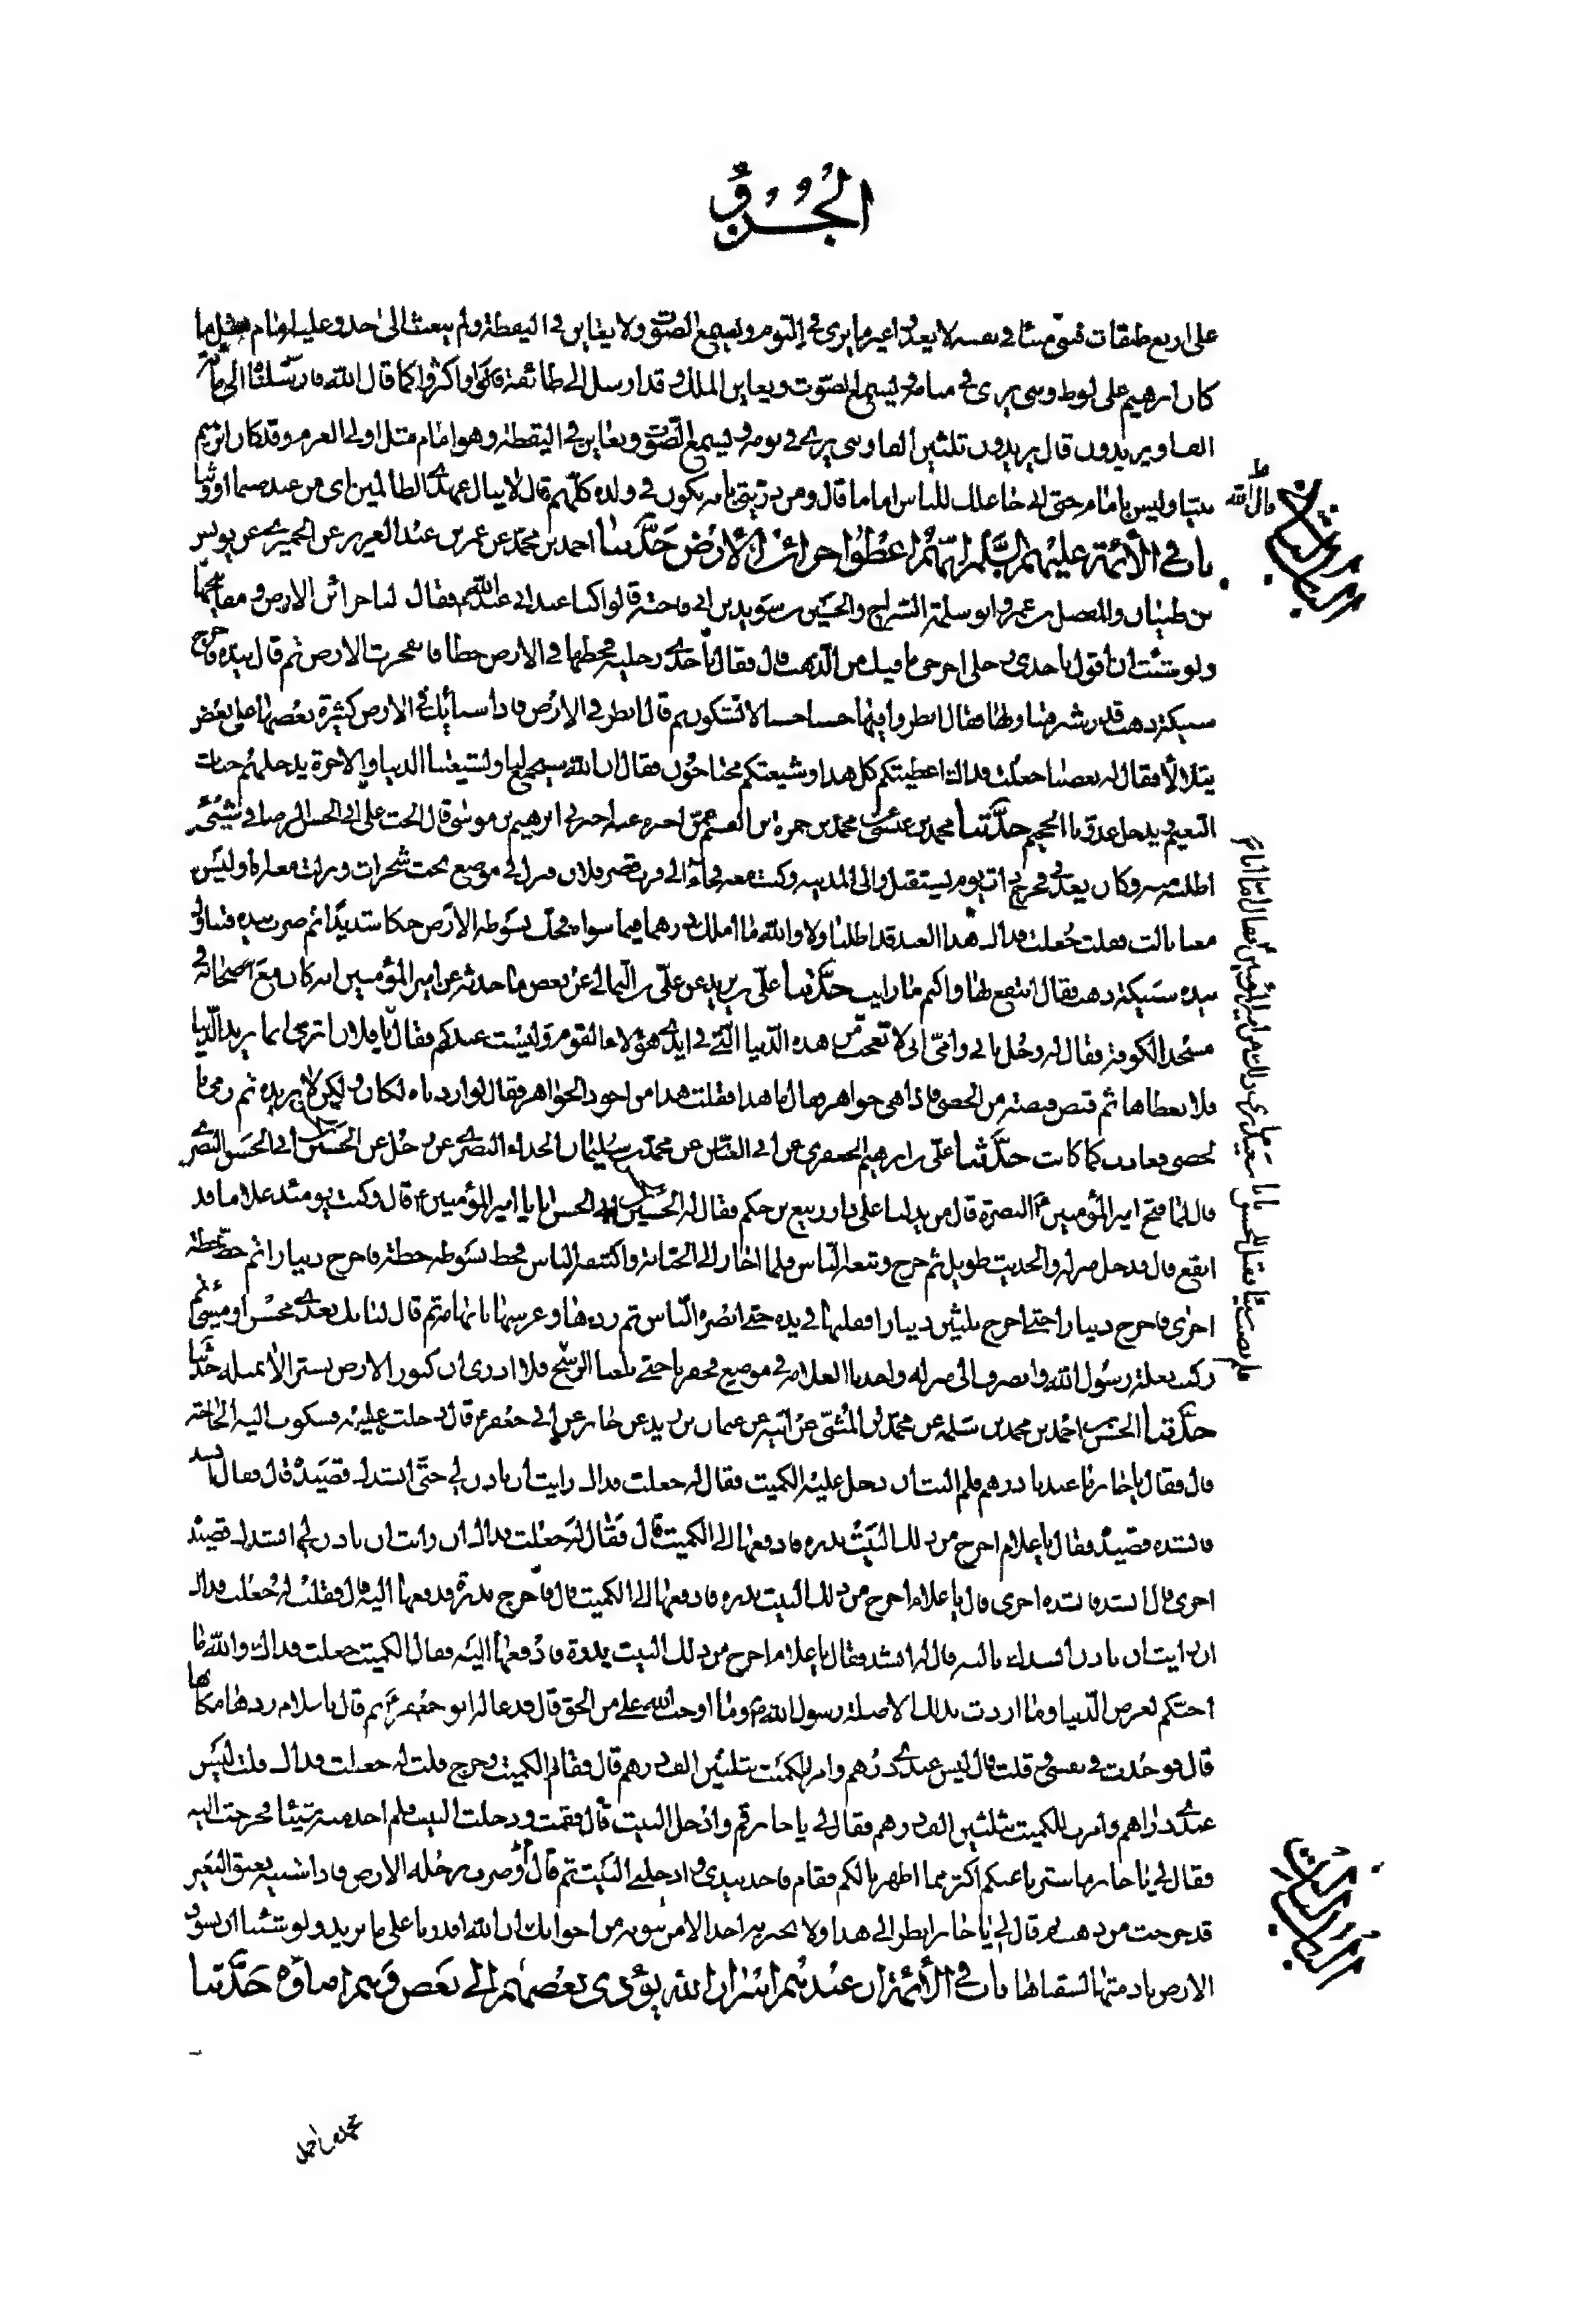 الجزو
على اربع طبقات فنبى منبئا فى نفسه لا يعدوا غيرها يرى فى النوم ويسمع الصوت ولا يعاين فى اليقظة ولم يبعث الى احد وعليه امام مثل ما
كان ابرهيم على لوط ونبى يرى فى منامه ويسمع الصوت ويعاين الملك وقد ارسل الى طائفة قلوا او اكثروا كما قال الله وارسلناه الى مائة
الف او يزيدون قال يزيدون ثلثين الفا ونبى يرى فى نومه ويسمع الصوت ويعاين فى اليقظة وهو امام مثل اولى العزم وقد كان ابرهيم
نبيا وليس بامام حتى انى جاعلك للناس اماما قال ومن ذريتى بانه يكون فى ولده كلهم قال لا ينال عهدى الظالمين اى من عبد صنما او وثنا
باب فى الأئمة عليهم السلم انهم اعطوا خزائن الأرض حدثنا احمد بن محمد عن عمر بن عبد العزيز عن الحميرى عن يونس
بن ظبيان والمفضل بن عمر وابو سلمة السراج والحسين بن سويد بن ابى فاختة قالوا كنا عند ابى عبد الله فقال لنا خزائن الارض ومفاتيحها
ولو شئت ان اقول باحدى رجلى اخرجى ما فيك من الذهب قال فقال باحدى رجليه فخطها فى الارض خطا فانفجرت الارض ثم قال بيده فاخرج
سبيكة ذهب قدر شبر فتناولها فقال انظروا فيها حسا حسنا لا تشكون ثم قال انظروا فى الارض فاذا سبائك فى الارض كثيرة بعضها على بعض
يتلألأ فقال له بعضنا جعلت فداك اعطيتم كل هذا وشيعتكم محتاجون فقال ان الله سيجمع لنا ولشيعتنا الدنيا والاخرة يدخلهم جنات
النعيم ويدخل عدونا الجحيم حدثنا محمد بن عيسى محمد بن حمزة بن القسم عمن اخبره عنه اخبرنى ابرهيم بن موسى قال الححت على ابى الحسن الرضا فى شيئ
اطلبه منه وكان يعدنى فخرج ذات يوم يستقبل والى المدينه وكنت معه فجاء الى قرب قصر فلان فنزل فى موضع تحت شجرات ونزلت معه انا وليس
معنا ثالث فقلت جعلت فداك هذا العيد قد اظلنا ولا والله ما املك درهما فما سواه فحك بسوطه الارض حكا شديدا ثم ضرب بيده فتناول
بيده سبيكة ذهب فقال انتفع بها واكتم ما رايت حدثنا على بن يزيد عن على بن الثمالى عن بعض ما حدثه عن امير المؤمنين انه كان مع اصحابه فى
مسجد الكوفة فقال له رجل بابى وامى انى لا تعجب من هذه الدنيا التى فى ايدى هؤلاء القوم وليست عندكم فقال يا فلان اترى انما نريد الدنيا
فلا نعطاها ثم قبض قبضة من الحصى فاذا هى جواهر فقال ما هذا فقلت هذا من اجود الجواهر فقال لو اردناه لكان ولكن لا نريده ثم رمى با
لحصى فعادت كما كانت حدثنا على بن ابرهيم الجعفرى عن ابى العباس عن محمد بن سليمان الحذاء البصرى عن رجل عن الحسن بن ابى الحسن البصرى
قال لما فتح امير المؤمنين البصرة قال من يدلنا على دار ربيع بن حكم فقال له الحسن بن ابى الحسن انا يا امير المؤمنين قال وكنت يومئذ غلاما قد
ايفع قال فدخل منزله والحديث طويل ثم خرج وتبعه الناس فلما اجاز الى الجبانة واكتنفه الناس فخط بسوطه خطة فاخرج دينارا ثم خط خطة
اخرى فاخرج دينارا حتى اخرج ثلثين دينارا فقلبها فى يده حتى ابصره الناس ثم ردها وغرسها بابهامه ثم قال ليأتك بعدى محسن او مسيئ ثم
ركب بغلة رسول الله وانصرف الى منزله واخذنا العلامة فى موضع فحفرنا حتى بلغنا الرسخ فلا ادرى ان كنوز الارض يستر الا بمثله حدثنا
حدثنا الحسن بن احمد بن محمد بن سلمة عن محمد بن المثنى عن ابيه عن عثمان بن زيد عن جابر عن ابى جعفر قال دخلت عليه فشكوت اليه الحاجة
قال فقال يا جابر ما عندنا درهم فلم البث ان دخل عليه الكميت فقال له جعلت فداك رايت ان تاذن لى حتى انشدك قصيدة قال فقال انشد
فانشده قصيدة فقال يا غلام اخرج من ذلك البيت بدرة فادفعها الى الكميت قال فقال له جعلت فداك ان رايت ان تاذن لى انشدك قصيدة
اخرى قال انشد فانشده اخرى قال يا غلام اخرج من ذلك البيت بدرة فادفعها الى الكميت قال فاخرج بدرة فدفعها اليه قال فقلت له جعلت فداك
ان رايت ان تاذن لى انشدك ثالثه قال له انشد فقال يا غلام اخرج من ذلك البيت بدرة فادفعها اليه فقال الكميت جعلت فداك والله ما
احبكم لعرض الدنيا وما اردت بذلك الا صلة رسول الله وما اوجب الله على من الحق قال فدعا له ابو جعفر ثم قال يا غلام ردها مكانها
قال فوجدت فى نفسى قلت قال ليس عندى درهم وامر للكميت بثلثين الف درهم قال فقام الكميت وخرج قلت له جعلت فداك قلت ليس
عندى دراهم وامرت للكميت بثلثين الف درهم فقال لى يا جابر قم وادخل البيت قال فقمت ودخلت البيت فلم اجد منه شيئا فخرجت اليه
فقال لى يا جابر ما سترنا عنكم اكثر مما اظهرنا لكم فقام فاخذ بيدى وادخلنى البيت ثم قال وضرب برجله الارض فاذا شبيه بعنق البعير
قد خرجت من ذهب ثم قال لى يا جابر انظر الى هذا ولا تخبر به احدا الا من تثق به من اخوانك ان الله اقدرنا على ما نريد ولو شئنا ان نسوق
الارض بازمتها لسقناها باب فى الأئمة ان عندهم اسرار الله يؤدى بعضهم الى بعض وهم امناؤه حدثنا
محمد بن احمد